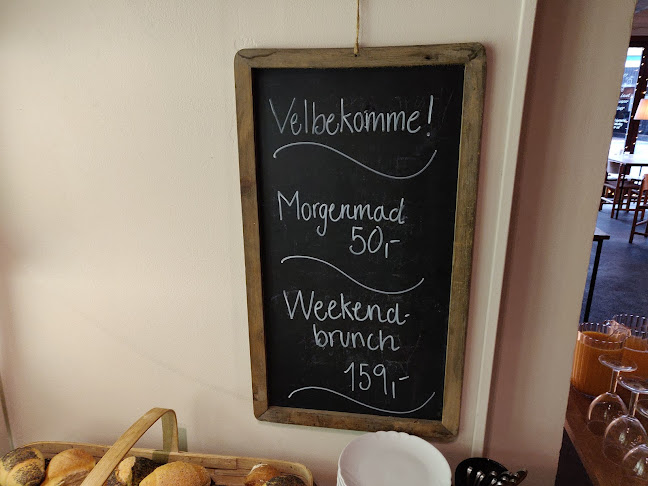 Velbekomme!
Morgenmad
50,-
Weekend-
brunch
159,-